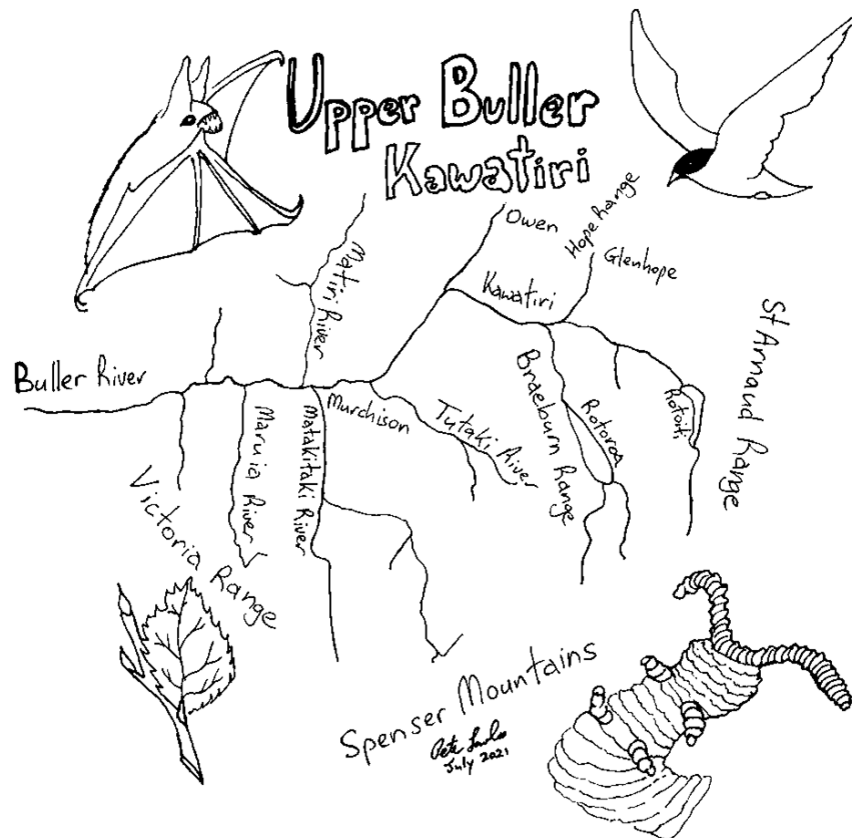 Upper Buller
Kawatiri
Owen
Hope Range
Glenhope
Matiri River
Kawatiri
St Arnaud Range
Buller River
Murchison
Tutaki River
Braeburn Range
Rotoroa
Rotoiti
Maruia River
Matakitaki River
Victoria Range
Spenser Mountains
Pete
July 2021